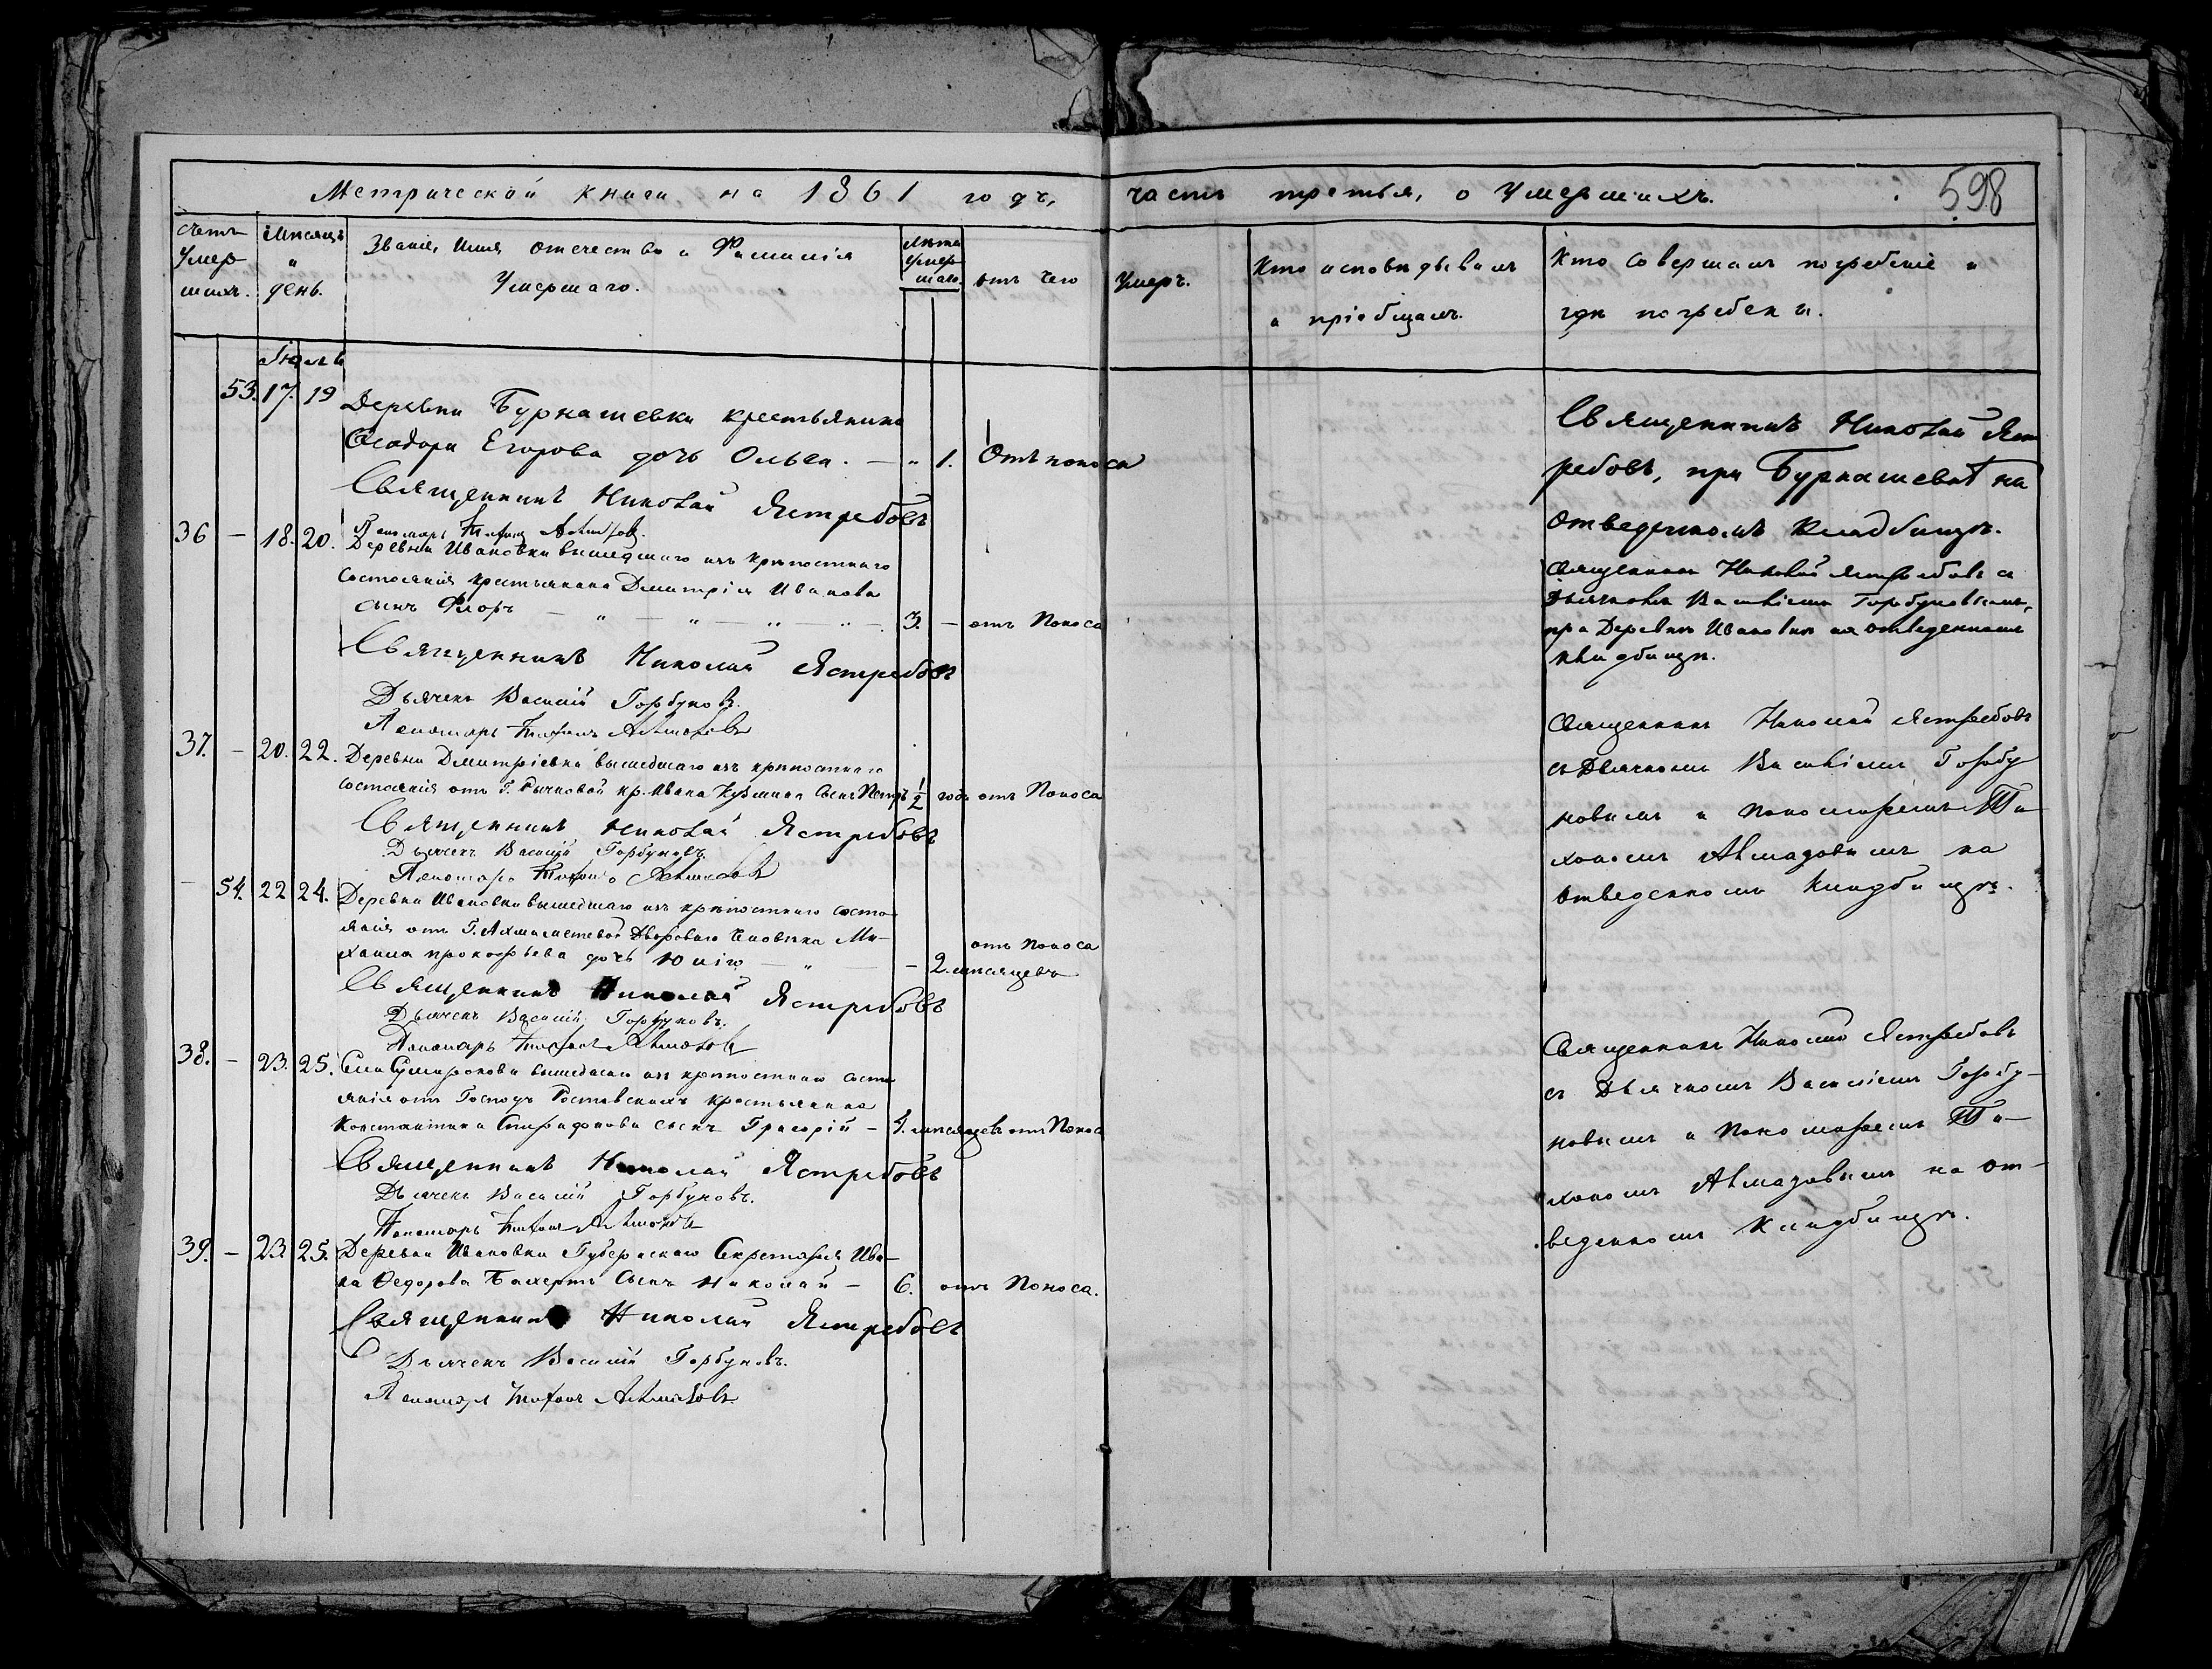 Метрической книги на 1861 годъ, часть третья, о Умершихъ. 598
Счетъ Умер шихъ.
Мѣсяцъ и день.
Званіе, Имя отечество и Фамилія Умершаго.
Лѣта умер шаго.
отъ чего Умеръ.
Кто исповѣдывалъ и пріобщалъ.
Кто совершалъ погребеніе и гдѣ погребены.
Іюль
53. 17. 19 Деревни Бурнашевки крестьянина
Ѳеодора Егорова дочь Ольга. — „ 1. Отъ поноса
Священникъ Николай Ястребовъ
Пономарь Тихонъ Алмазовъ.
Священникъ Николай Яст
ребовъ, при Бурнашевкѣ на
отведенномъ кладбищѣ.
36 — 18. 20. Деревни Ивановки вышедшаго изъ крѣпостнаго
состоянія крестьянина Дмитрія Иванова
сынъ Флоръ — „ — „ — „ — „ — 3. — отъ Поноса
Священникъ Николай Ястребовъ
Дьячекъ Василій Горбуновъ.
Пономарь Тихонъ Алмазовъ
Священникъ Николай Ястребовъ съ
Дьячкомъ Василіемъ Горбуновымъ,
при Деревнѣ Ивановкѣ на отведенномъ
кладбищѣ.
37. — 20. 22. Деревни Дмитріевки вышедшаго изъ крѣпостнаго
состоянія от Г. Рычковой кр. Ивана Кузмина Сынъ Петръ 1/2 года отъ Поноса
Священникъ Николай Ястребовъ
Дьячекъ Василій Горбуновъ.
Пономарь Тихонъ Алмазовъ
Священникъ Николай Ястребовъ
съ Дьячкомъ Василіемъ Горбу
новымъ и Пономаремъ Ти
хономъ Алмазовымъ на
отведенномъ кладбищѣ.
— 54. 22 24. Деревни Ивановки вышедшаго изъ крѣпостнаго состо
янія отъ Г. Дворового Человѣка Ми—
хаила прокофьева дочь — „ — — 2. мѣсяцевъ отъ поноса
Священникъ Николай Ястребовъ
Дьячекъ Василій Горбуновъ.
Пономарь Тихонъ Алмазовъ
38. — 23. 25. Села вышедшаго изъ крѣпостнаго состо
янія отъ Господъ Ростовскихъ крестьянина
Константина Спиридонова сынъ Григорій — 4. мѣсяцевъ отъ Поноса
Священникъ Николай Ястребовъ
Дьячекъ Василій Горбуновъ.
Пономарь Тихонъ Алмазовъ
Священникъ Николай Ястребовъ
съ Дьячкомъ Василіемъ Горбу—
новымъ и Пономаремъ Ти—
хономъ Алмазовымъ на от—
веденномъ кладбищѣ.
39. — 23. 25. Деревни Ивановки Губернскаго Секретаря Ива—
на Федорова Сынъ Николай — 6. отъ Поноса.
Священникъ Николай Ястребовъ
Дьячекъ Василій Горбуновъ.
Пономарь Тихонъ Алмазовъ